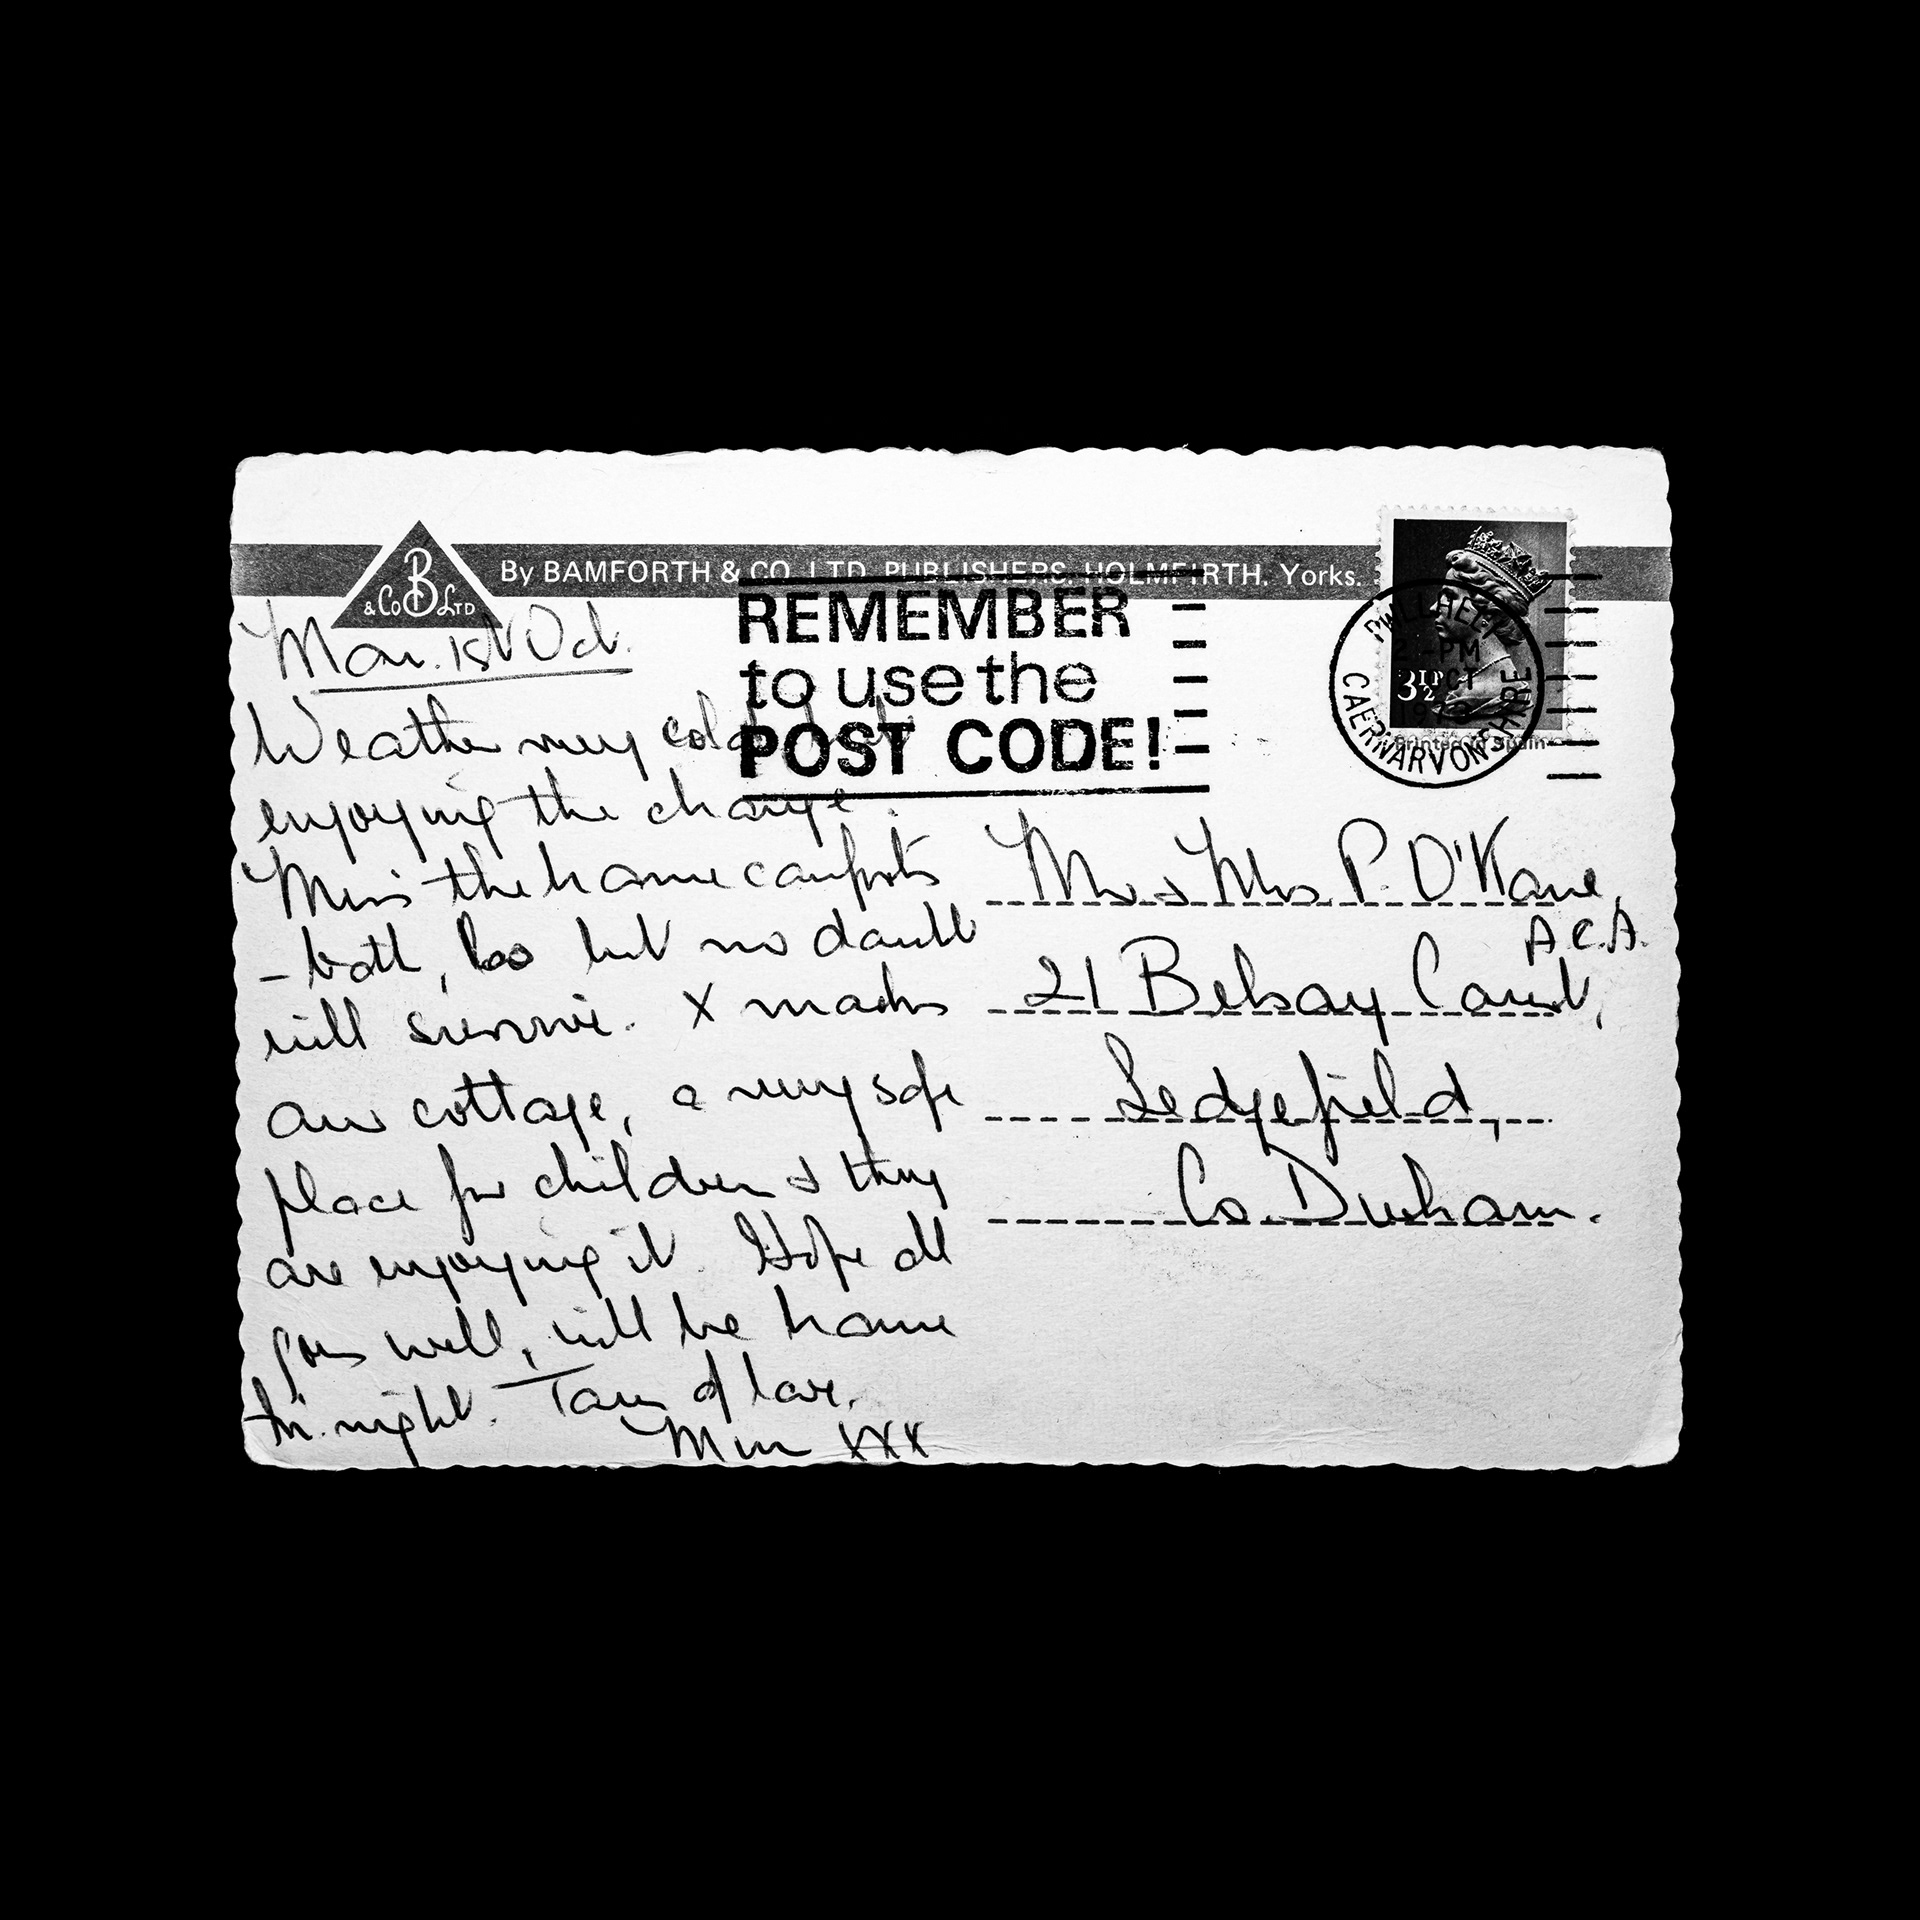 By BAMFORTH & CO. LTD. PUBLISHERS. HOLMFIRTH. Yorks.
& Co B LTD
REMEMBER
to use the
POST CODE!
PWLLHELI
2 - PM
OCT
1973
CAERNARVONSHIRE
3½P
Printed in Spain
Mon. 1st Oct.
Weather very cold but
enjoying the change.
Miss the home comforts
- bath, loo but no doubt
will survive. X marks
our cottage, a very safe
place for children & they
are enjoying it. Hope all
goes well, will be home
Fri. night. Tons of love,
Mum XXX
Mr & Mrs. P. O'Kane,
A.C.A.
21 Belsay Court,
Sedgefield,
Co. Durham.